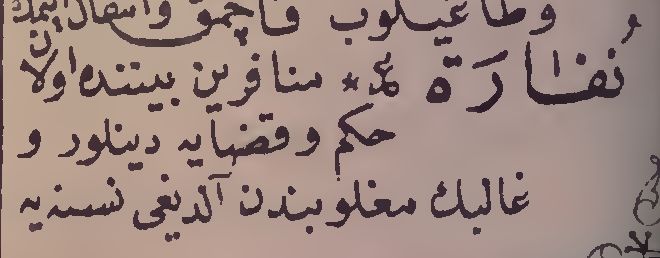 وطاغیلوب قاچمق وانتقال ایتمك
نُفَارَة ع * منافرین بیننده اولان
حكم و قضایه دینلور و
غالبك مغلوبندن آلدیغی نسنه‌یه